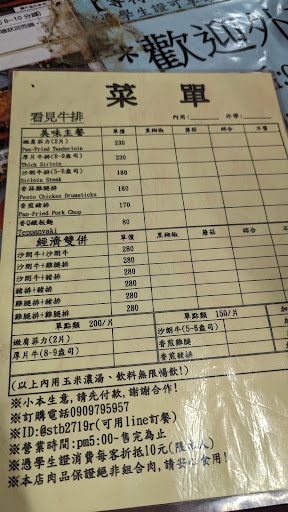 8~10分鐘)
歡迎外
菜 單
看見牛排 內用: 外帶:
美味主餐 單價 黑胡椒 蘑菇 綜合 不醬
嫩肩菲力(2片) 230
Pan-Fried Tenderloin
厚片牛排(8-9盎司) 230
Thick Sirloin
沙朗牛排(5-6盎司) 180
Sirloin Steak
香蒜雞腿排 180
Pesto Chicken Drumsticks
香煎豬排 170
Pan-Fried Pork Chop
香Q鐵板麵 80
Teppanyaki
經濟雙併 單價 黑胡椒 蘑菇 綜合 不
沙朗牛+沙朗牛 280
沙朗牛+雞腿排 280
沙朗牛+豬排 280
豬排+豬排 280
雞腿排+豬排 280
雞腿排+雞腿排 280
單點類 200/片 單點類 150/片
嫩肩菲力(2片) 沙朗牛(5-6盎司)
厚片牛(8-9盎司) 香煎雞腿
香煎豬排
(以上內用玉米濃湯、飲料無限暢飲!)
※小本生意,請先付款,謝謝合作!
※訂購電話0909795957
※ID:@stb2719r(可用line訂餐)
※營業時間:pm5:00-售完為止
※憑學生證消費每客折抵10元(限本人)
※本店肉品保證絕非組合肉,請安心食用!